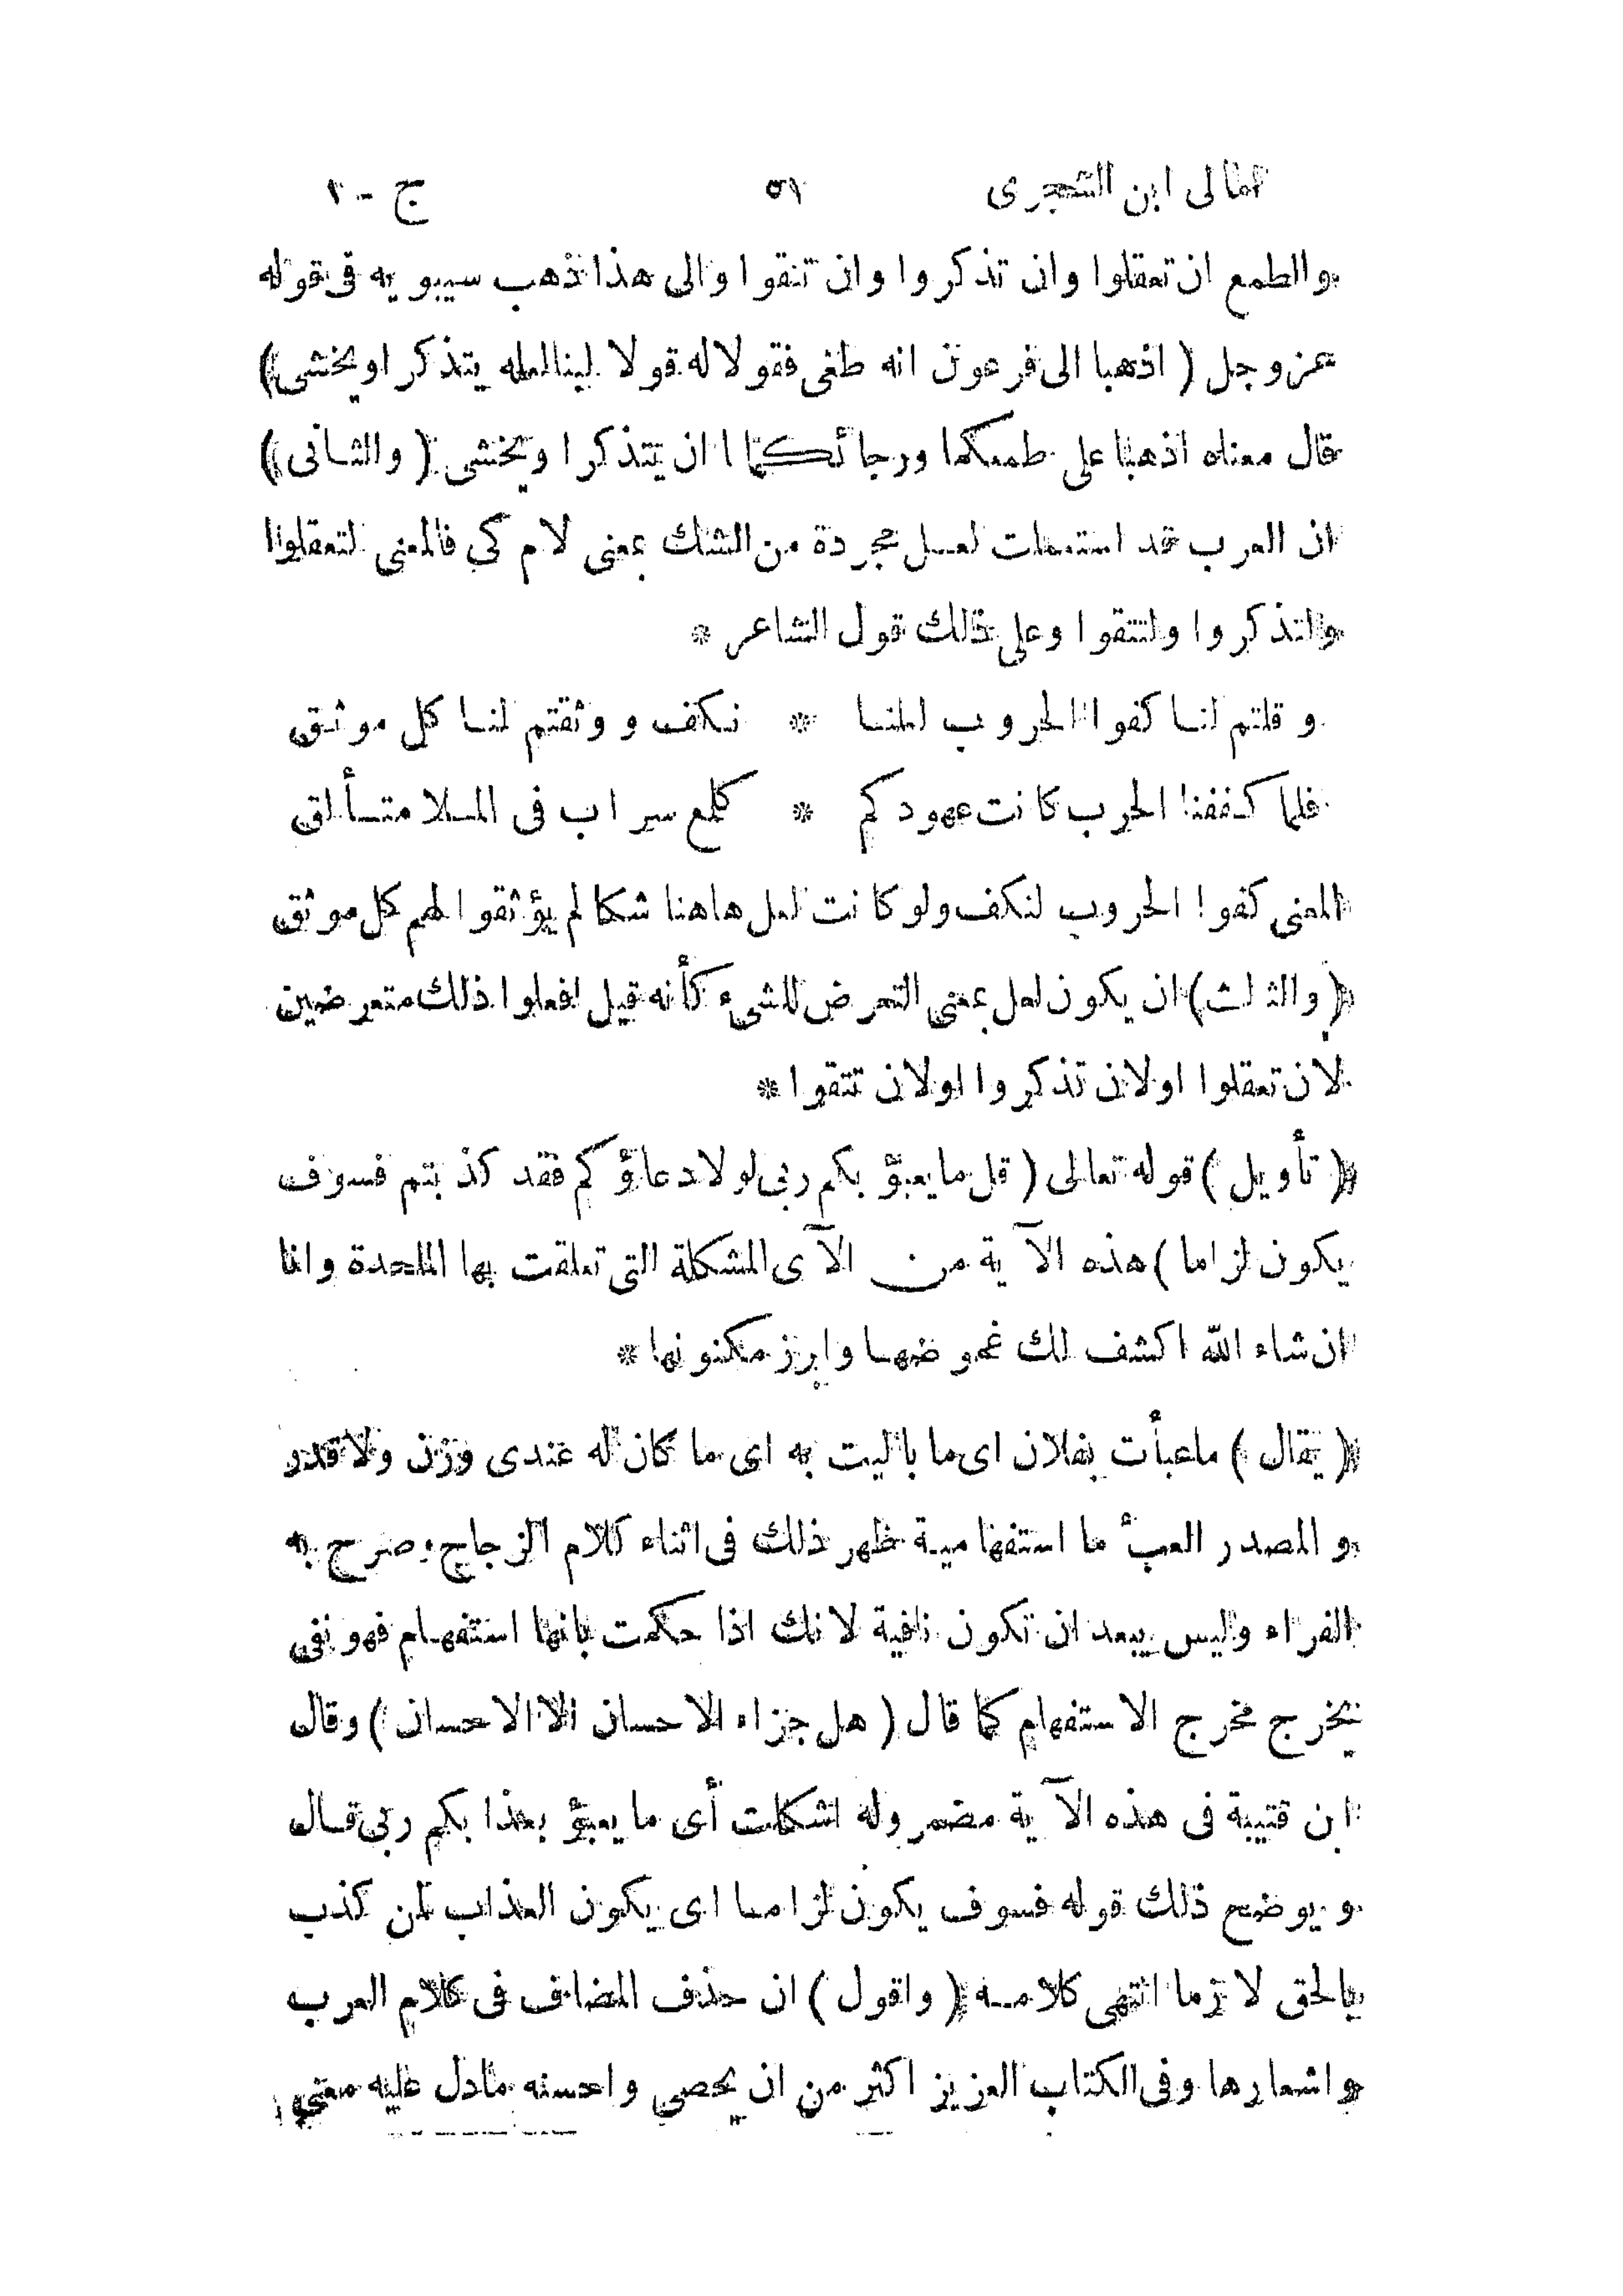 امالى ابن الشجرى ٥١ ج - ١
والطمع ان تعقلوا وان تذكروا وان تتقوا والى هذا ذهب سيبويه فى قوله
عز وجل ( اذهبا الى فرعون انه طغى فقولا له قولا لينا لعله يتذكر او يخشى)
قال معناه اذهبا على طمعكما ورجائكما ان يتذكر او يخشى ( والثانى )
ان العرب قد استعملت لعل مجردة من الشك بمعنى لام كى فالمعنى لتعقلوا
ولتذكروا ولتتقوا وعلى ذلك قول الشاعر *
و قلتم لنا كفوا الحروب لعلنا * نكف و وثقتم لنا كل موثق
فلما كففنا الحرب كانت عهودكم * كلمع سراب فى الملا متألق
المعنى كفوا الحروب لنكف ولو كانت لعل هاهنا شكا لم يؤثقوا لهم كل موثق
( والثالث ) ان يكون لعل بمعنى التعرض للشىء كأنه قيل افعلوا ذلك متعرضين
لان تعقلوا اولان تذكروا اولان تتقوا *
( تأويل ) قوله تعالى ( قل ما يعبؤ بكم ربى لولا دعاؤكم فقد كذبتم فسوف
يكون لزاما ) هذه الآية من الآى المشكلة التى تعلقت بها الملحدة وانا
ان شاء الله اكشف لك غموضها وابرز مكنونها *
( يقال ) ما عبأت بفلان اى ما باليت به اى ما كان له عندى وزن ولا قدر
و المصدر العبأ ما استفهامية ظهر ذلك فى اثناء كلام الزجاج وصرح به
الفراء وليس يبعد ان تكون نافية لانك اذا حكمت بانها استفهام فهو نفى
يخرج مخرج الاستفهام كما قال ( هل جزاء الاحسان الا الاحسان ) وقال
ابن قتيبة فى هذه الآية مضمر وله اشكلت أى ما يعبؤ بعذابكم ربى قال
و يوضح ذلك قوله فسوف يكون لزاما اى يكون العذاب لمن كذب
بالحق لازما انتهى كلامه ( واقول ) ان حذف المضاف فى كلام العرب
واشعارها وفى الكتاب العزيز اكثر من ان يحصى واحسنه مادل عليه معنى